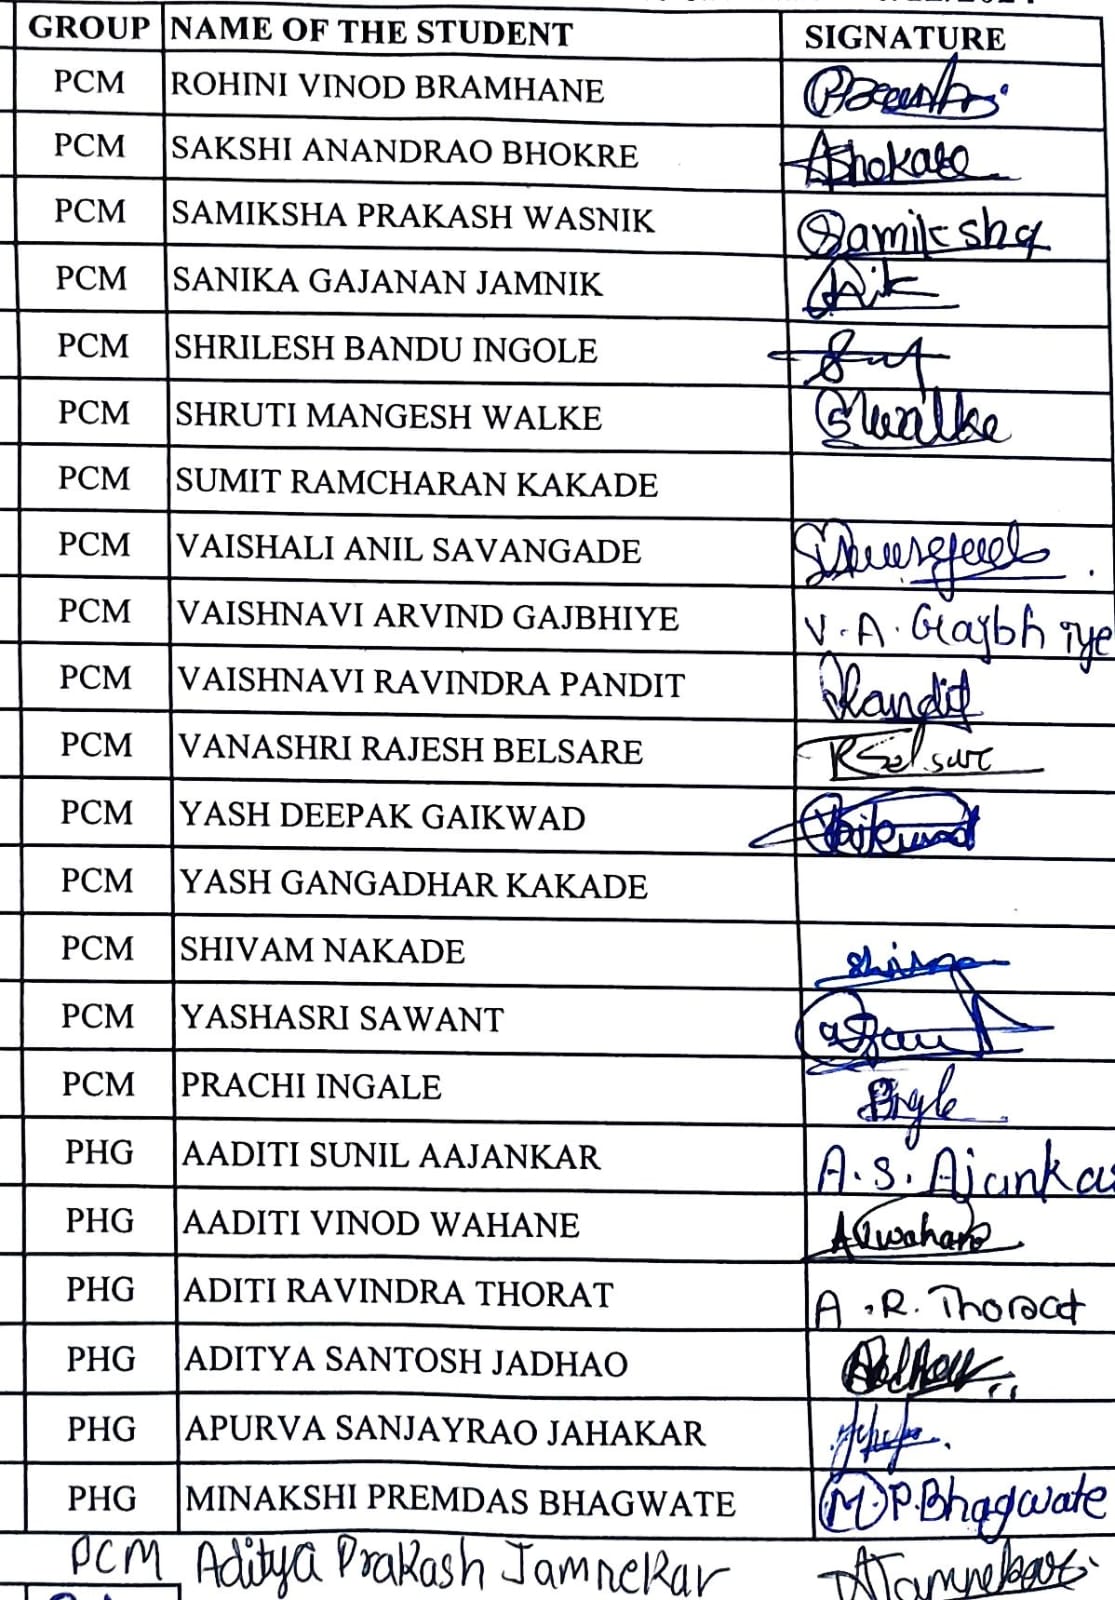 GROUP NAME OF THE STUDENT SIGNATURE
PCM ROHINI VINOD BRAMHANE
PCM SAKSHI ANANDRAO BHOKRE
PCM SAMIKSHA PRAKASH WASNIK Samiksha
PCM SANIKA GAJANAN JAMNIK
PCM SHRILESH BANDU INGOLE
PCM SHRUTI MANGESH WALKE SMwalke
PCM SUMIT RAMCHARAN KAKADE
PCM VAISHALI ANIL SAVANGADE
PCM VAISHNAVI ARVIND GAJBHIYE V.A. Gajbhiye
PCM VAISHNAVI RAVINDRA PANDIT
PCM VANASHRI RAJESH BELSARE
PCM YASH DEEPAK GAIKWAD
PCM YASH GANGADHAR KAKADE
PCM SHIVAM NAKADE
PCM YASHASRI SAWANT
PCM PRACHI INGALE
PHG AADITI SUNIL AAJANKAR A.S. Ajankar
PHG AADITI VINOD WAHANE
PHG ADITI RAVINDRA THORAT A.R. Thorat
PHG ADITYA SANTOSH JADHAO
PHG APURVA SANJAYRAO JAHAKAR
PHG MINAKSHI PREMDAS BHAGWATE M.P.Bhagwate
PCM Aditya Prakash Jamnekar AJamnekar